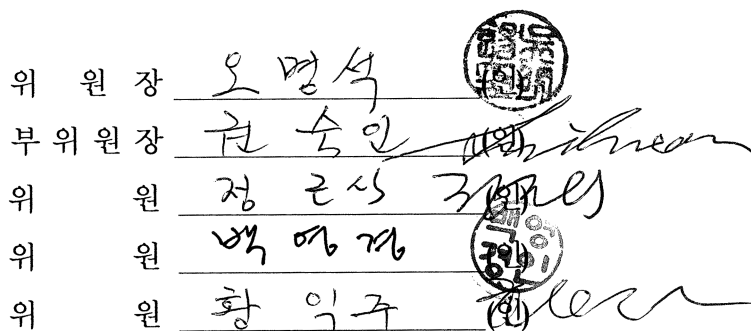 위 원 장 오명석 (인)
부 위 원 장 권 숙인 (인)
위 원 정 근식 (인)
위 원 백영경 (인)
위 원 황 익주 (인)